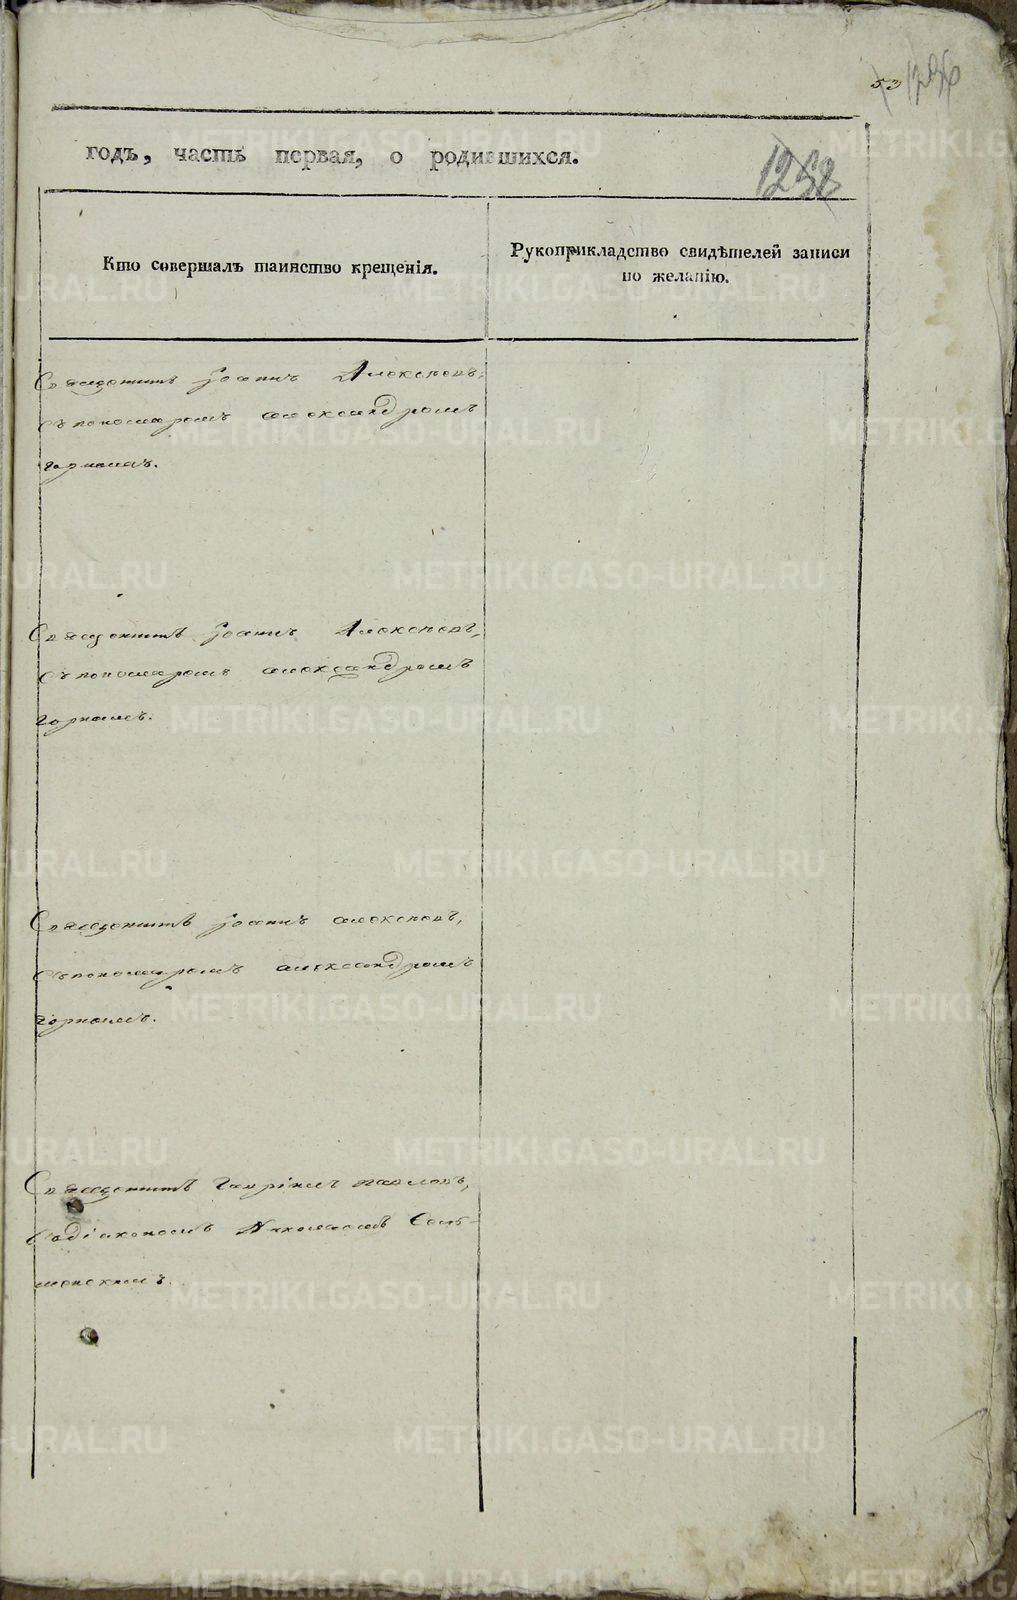 53
годъ, часть первая, о родившихся.
Кто совершалъ таинство крещенія.
Рукоприкладство свидѣтелей записи
по желанію.
Священникъ Іоаннъ Алексеевъ,
съ пономаремъ Александромъ
Горнымъ.
Священникъ Іоаннъ Алексеевъ,
съ пономаремъ Александромъ
Горнымъ.
Священникъ Іоаннъ Алексеевъ,
съ пономаремъ Александромъ
Горнымъ.
Священникъ Гавріилъ Павловъ,
съ діакономъ Николаемъ
METRIKI.GASO-URAL.RU